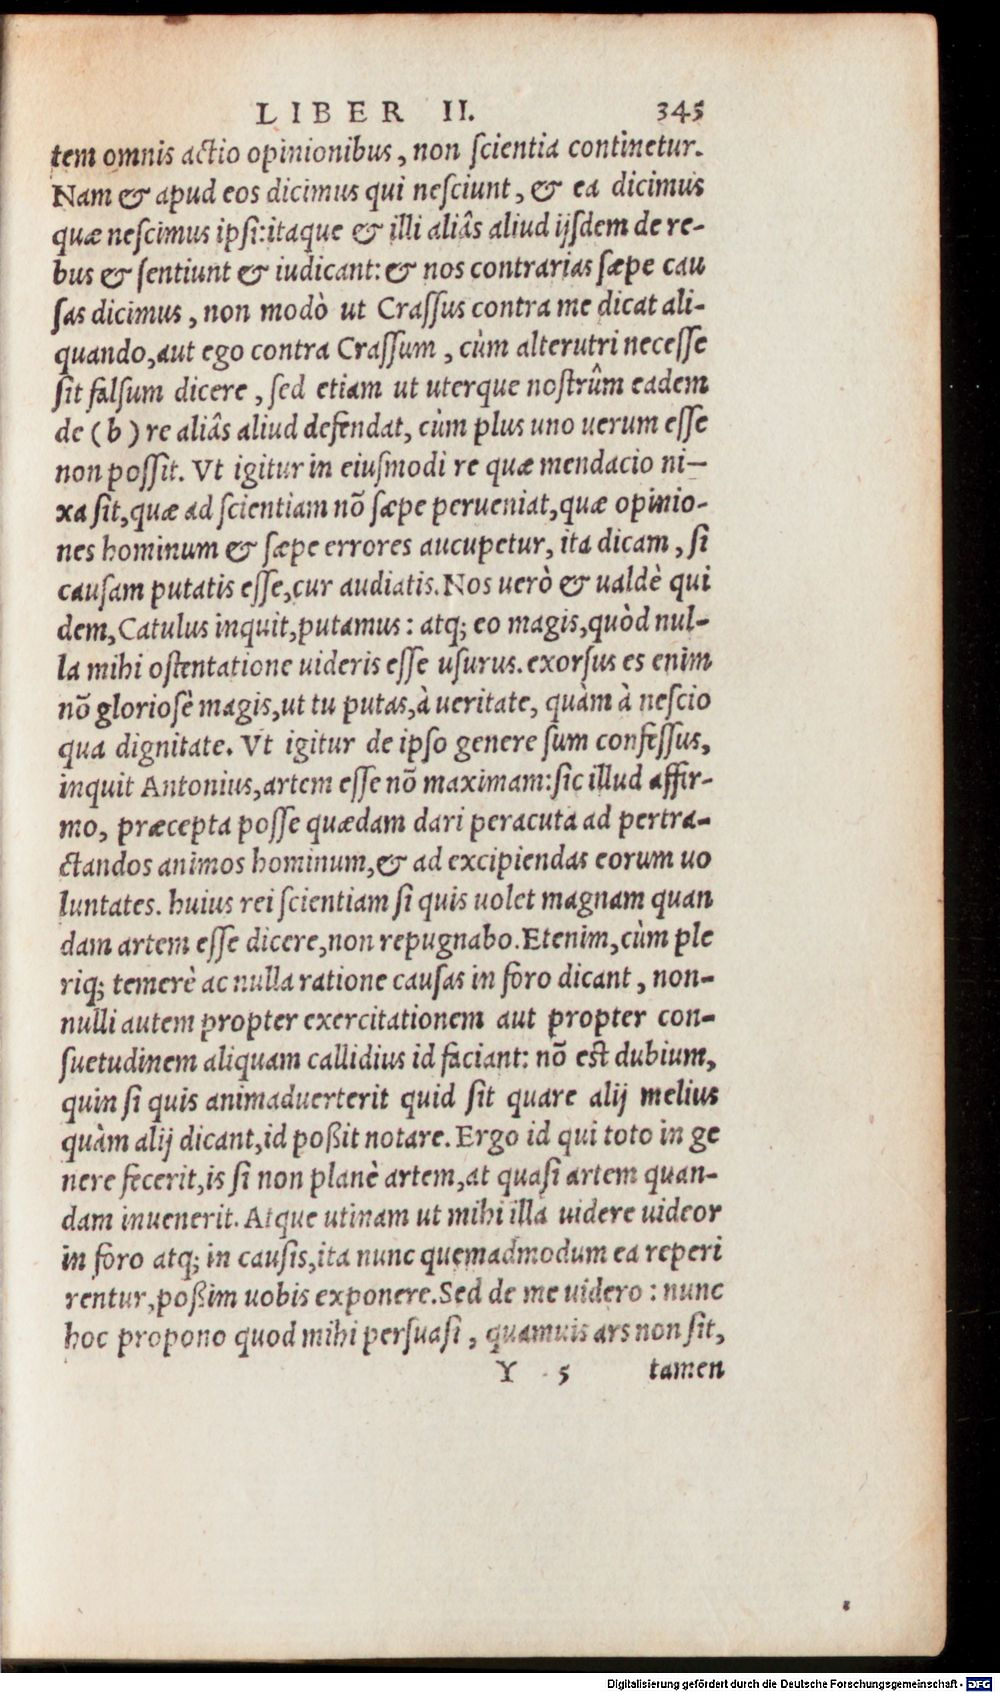 LIBER II. 345
tem omnis actio opinionibus, non ſcientia continetur.
Nam & apud eos dicimus qui neſciunt, & ea dicimus
quæ neſcimus ipſi:itaque & illi aliâs aliud ijſdem de re-
bus & ſentiunt & iudicant: & nos contrarias ſæpe cau
ſas dicimus, non modò ut Craſſus contra me dicat ali-
quando, aut ego contra Craſſum, cùm alterutri neceſſe
ſit falſum dicere, ſed etiam ut uterque noſtrûm eadem
de (b) re aliâs aliud defendat, cùm plus uno uerum eſſe
non poſſit. Vt igitur in eiuſmodi re quæ mendacio ni-
xa ſit, quæ ad ſcientiam nõ ſæpe perueniat, quæ opinio-
nes hominum & ſæpe errores aucupetur, ita dicam, ſi
cauſam putatis eſſe, cur audiatis. Nos uerò & ualdè qui
dem, Catulus inquit, putamus: atq; eo magis, quòd nul-
la mihi oſtentatione uideris eſſe uſurus. exorſus es enim
nõ glorioſè magis, ut tu putas, à ueritate, quàm à neſcio
qua dignitate. Vt igitur de ipſo genere ſum confeſſus,
inquit Antonius, artem eſſe nõ maximam: ſic illud affir-
mo, præcepta poſſe quædam dari peracuta ad pertra-
ctandos animos hominum, & ad excipiendas eorum uo
luntates. huius rei ſcientiam ſi quis uolet magnam quan
dam artem eſſe dicere, non repugnabo. Etenim, cùm ple
riq; temerè ac nulla ratione cauſas in foro dicant, non-
nulli autem propter exercitationem aut propter con-
ſuetudinem aliquam callidius id faciant: nõ eſt dubium,
quin ſi quis animaduerterit quid ſit quare alij melius
quàm alij dicant, id poßit notare. Ergo id qui toto in ge
nere fecerit, is ſi non planè artem, at quaſi artem quan-
dam inuenerit. Atque utinam ut mihi illa uidere uideor
in foro atq; in cauſis, ita nunc quemadmodum ea reperi
rentur, poßim uobis exponere. Sed de me uidero: nunc
hoc propono quod mihi perſuaſi, quamuis ars non ſit,
Y 5 tamen
Digitalisierung gefördert durch die Deutsche Forschungsgemeinschaft - DFG